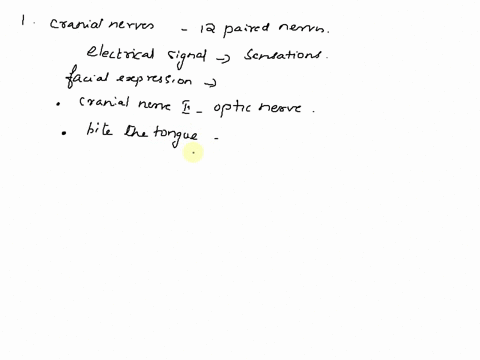 1. Cranial nerves - 12 paired nerves.
electrical signal → sensations.
facial expression →
• Cranial nerve II - optic nerve.
• bite the tongue -